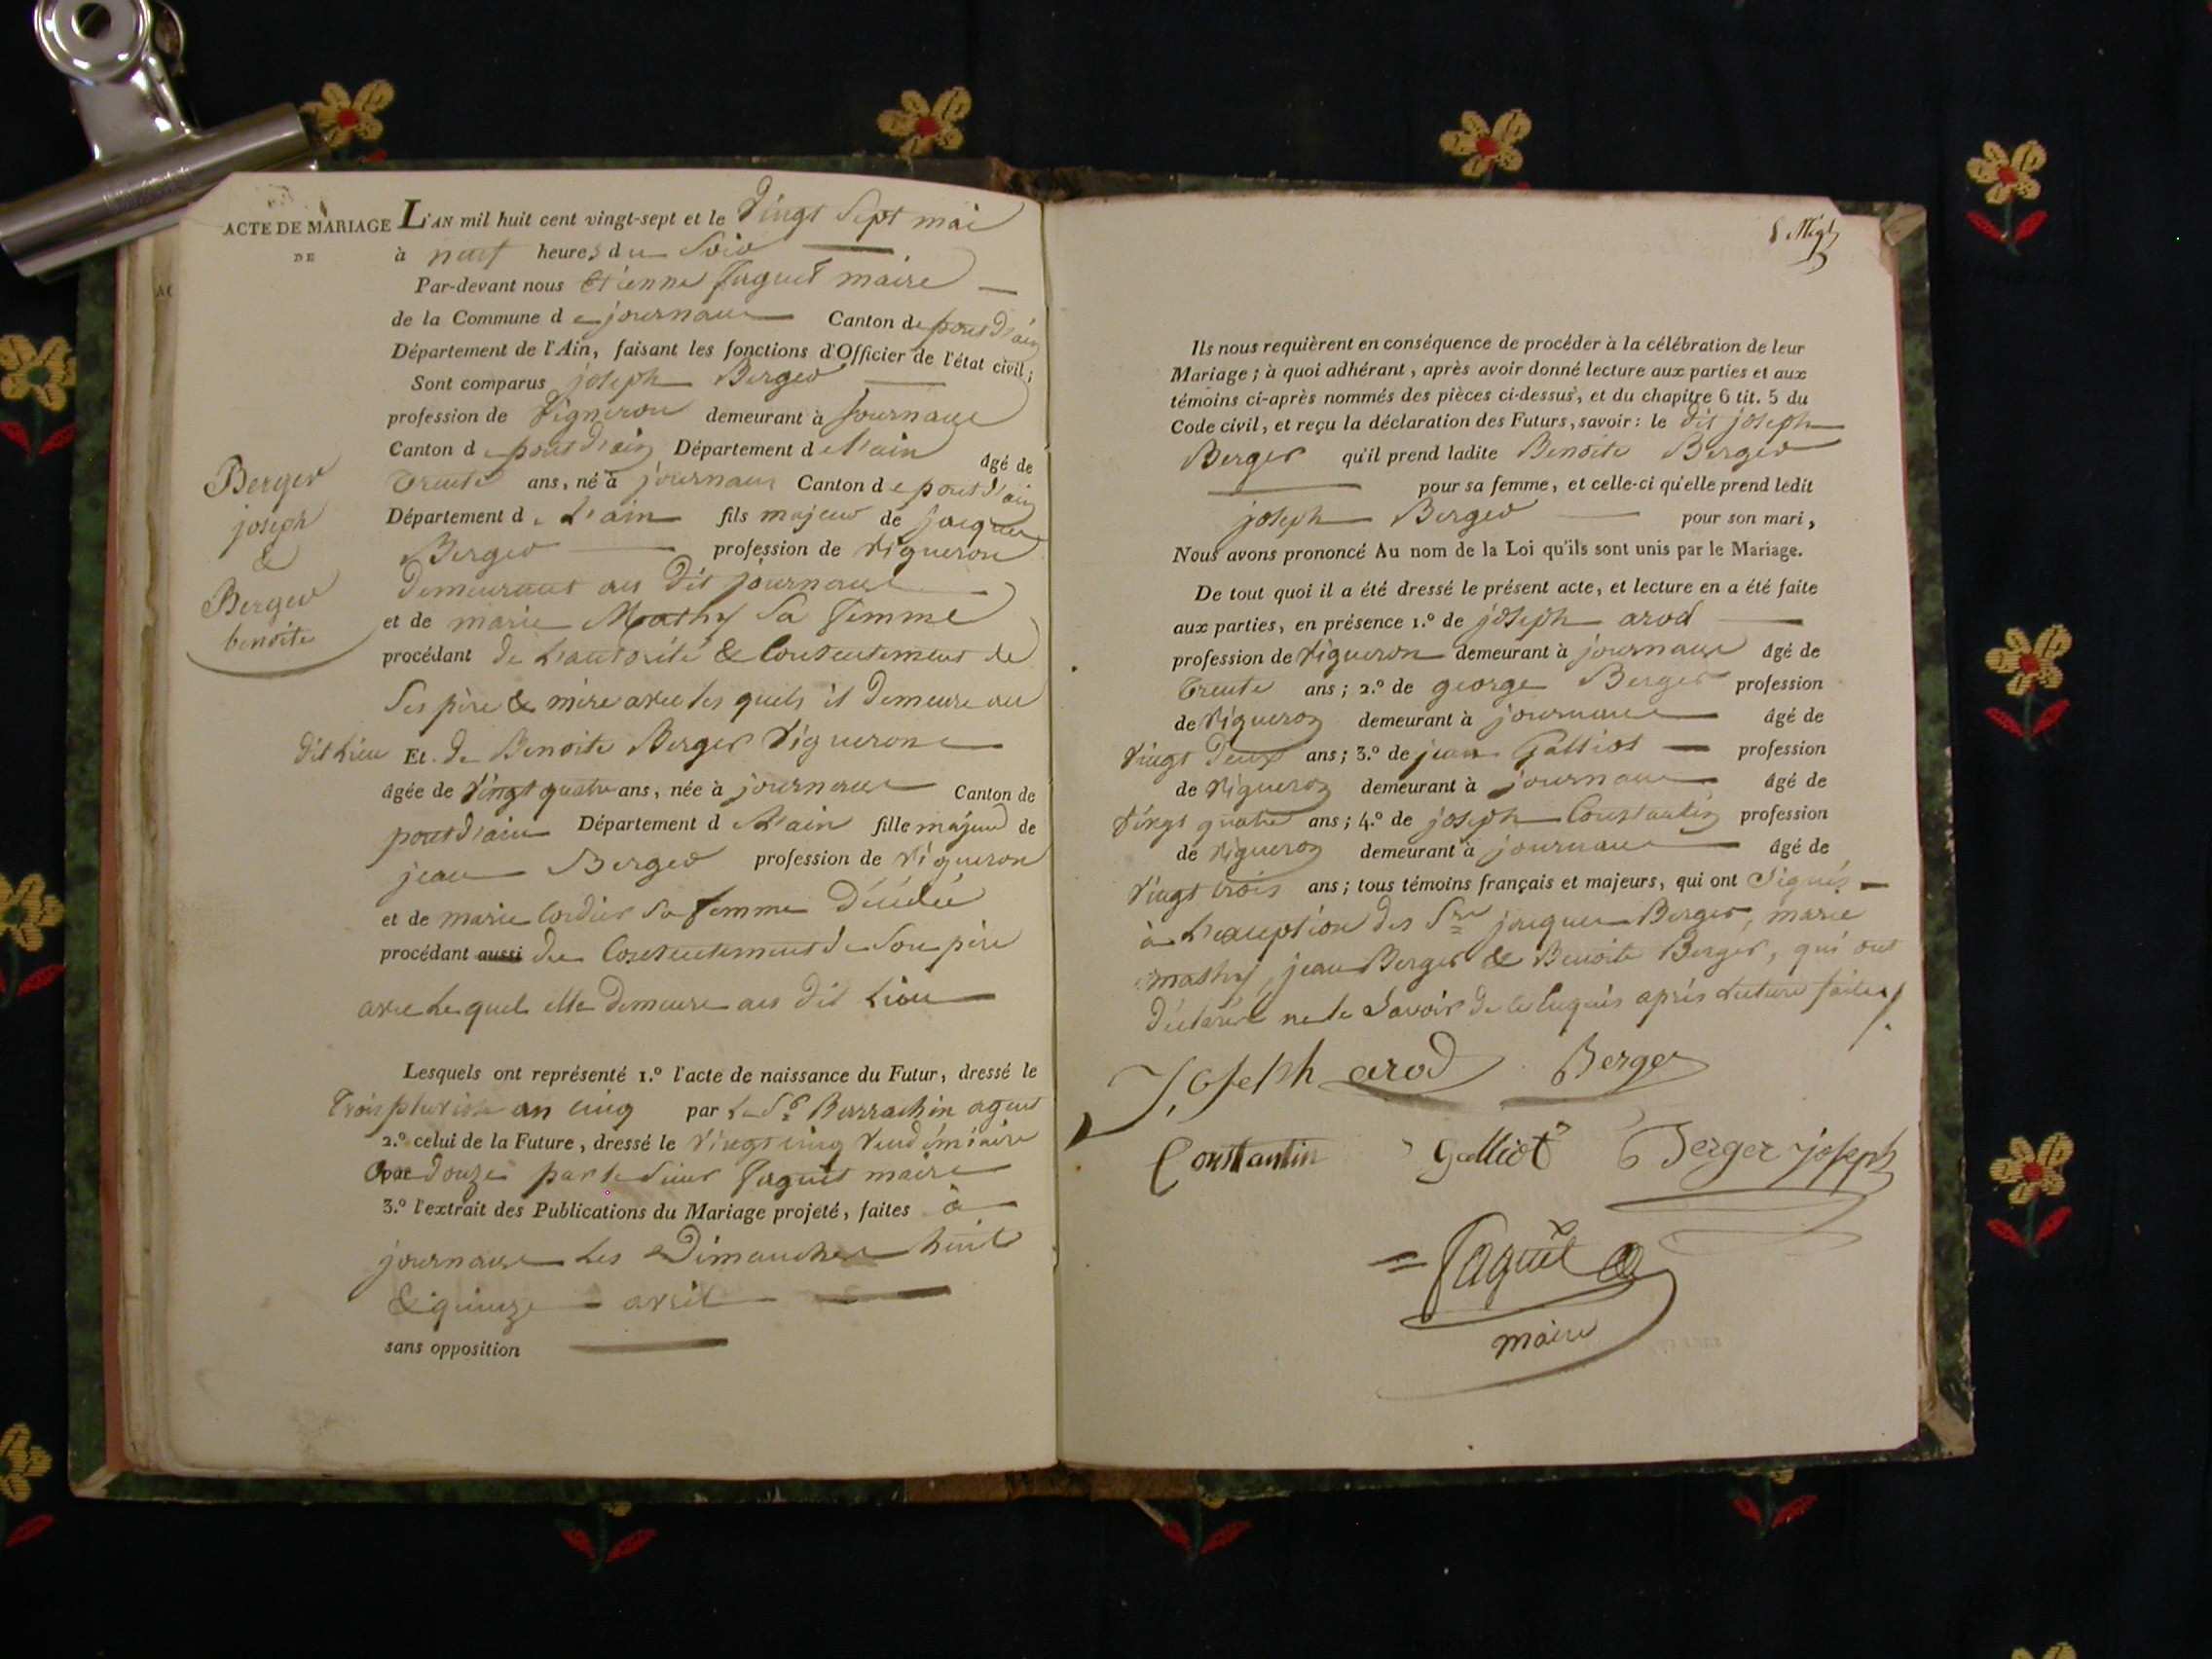 ACTE DE MARIAGE
DE
Berger
joseph
&
Berger
benoite
L'AN mil huit cent vingt-sept et le Vingt Sept mai
à neuf heures du Soir
Par-devant nous Etienne Faguet maire
de la Commune de journaux Canton de pontd'ain
Département de l'Ain, faisant les fonctions d'Officier de l'état civil;
Sont comparus joseph Berger
profession de Vigneron demeurant à journaux
Canton de pontd'ain Département de l'ain âgé de
Trente ans, né à journaux Canton de pontd'ain
Département de L'ain fils majeur de jacques
Berger profession de Vigneron
demeurant au dit journaux
et de marie Mathy Sa femme
procédant de L'autorité & Consentement de
Ses père & mère avec les quels il demeure au
dit Lieu Et de Benoite Berger Vigneronne
âgée de Vingt quatre ans, née à journaux Canton de
pontd'ain Département de L'ain fille majeure de
jean Berger profession de Vigneron
et de marie Cordier Sa femme Décédée
procédant aussi du Consentement de Son père
avec Lequel elle demeure au dit Lieu
Lesquels ont représenté 1.º l'acte de naissance du Futur, dressé le
Trois pluviose an cinq par Le Sr Barrachin agent
2.º celui de la Future, dressé le Vingt cinq Vendémiaire
an douze par le Sieur Faguet maire
3.º l'extrait des Publications du Mariage projeté, faites à
journaux Les Dimanches huit
& quinze avril
sans opposition
Ils nous requièrent en conséquence de procéder à la célébration de leur
Mariage; à quoi adhérant, après avoir donné lecture aux parties et aux
témoins ci-après nommés des pièces ci-dessus, et du chapitre 6 tit. 5 du
Code civil, et reçu la déclaration des Futurs, savoir: le dit joseph
Berger qu'il prend ladite Benoite Berger
pour sa femme, et celle-ci qu'elle prend ledit
joseph Berger pour son mari,
Nous avons prononcé Au nom de la Loi qu'ils sont unis par le Mariage.
De tout quoi il a été dressé le présent acte, et lecture en a été faite
aux parties, en présence 1.º de joseph arod
profession de Vigneron demeurant à journaux âgé de
Trente ans; 2.º de george Berger profession
de Vigneron demeurant à journaux âgé de
Vingt Deux ans; 3.º de jean Galliot profession
de Vigneron demeurant à journaux âgé de
Vingt quatre ans; 4.º de joseph Constantin profession
de Vigneron demeurant à journaux âgé de
Vingt trois ans; tous témoins français et majeurs, qui ont Signés
à L'exception des Srs jacques Berger, marie
mathy, jean Berger & Benoite Berger, qui ont
déclaré ne le Savoir de ce Enquis après Lecture faite
Joseph arod Berger
Constantin Galliot Berger joseph
Faguet
maire